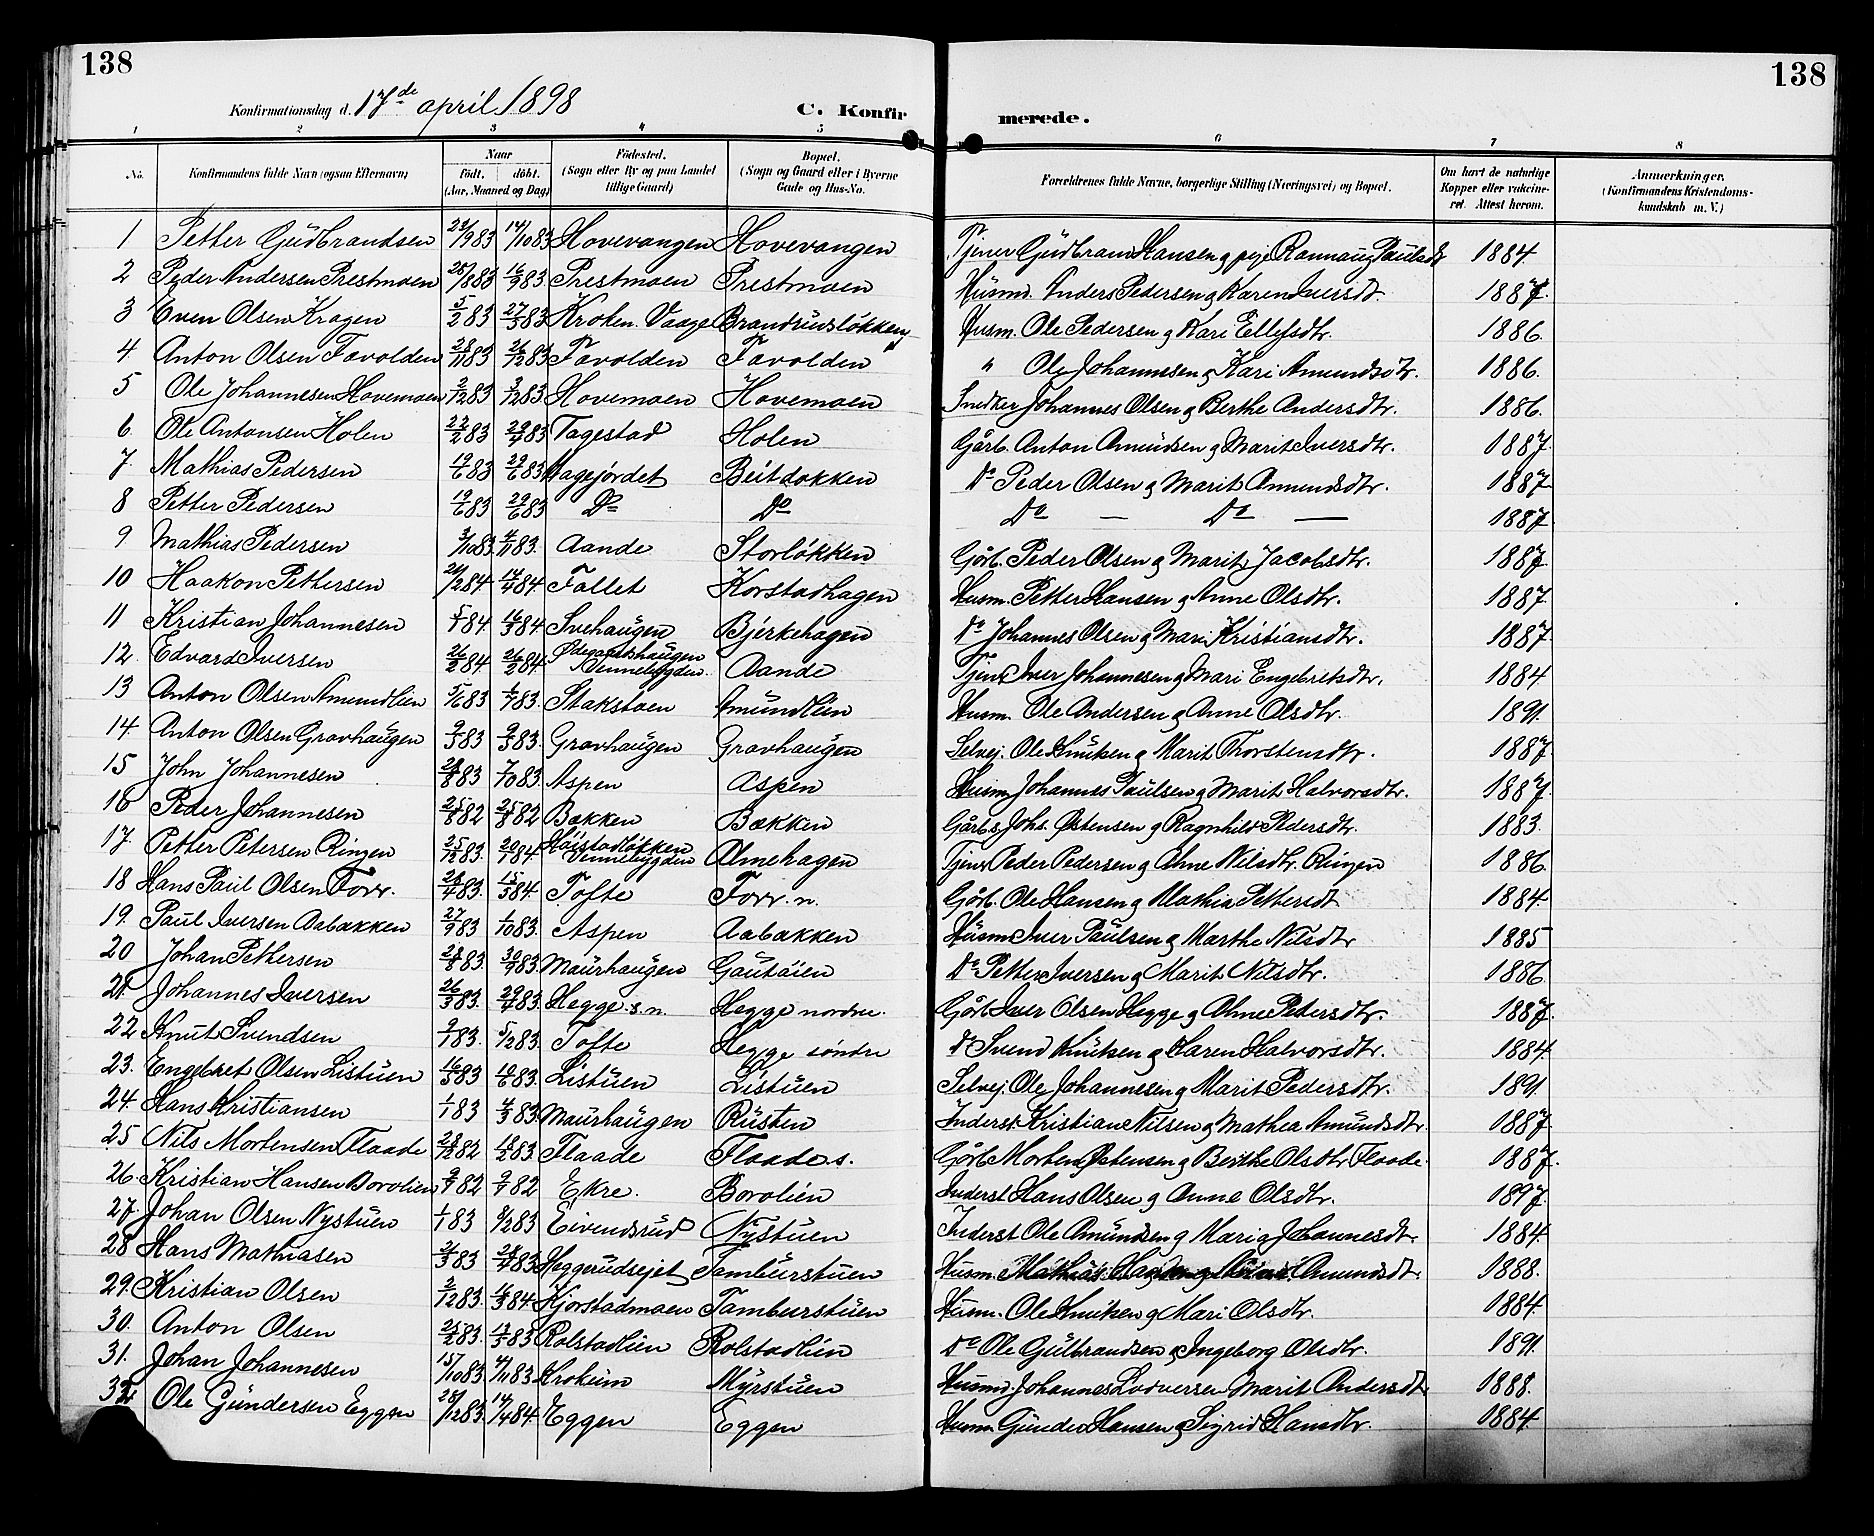 138
138
Konfirmationsdag d. 17de april 1898
C. Konfir merede.
1 2 3 4 5 6 7 8
No. Konfirmandens fulde Navn (ogsaa Efternavn) Naar født. døbt. (Aar, Maaned og Dag) Fødested. (Sogn eller By og paa Landet tillige Gaard) Bopæl. (Sogn og Gaard eller i Byerne Gade og Hus-No. Forældrenes fulde Navne, borgerlige Stilling (Næringsvei) og Bopæl. Om havt de naturlige Kopper eller vakcineret. Attest herom. Anmærkninger. (Konfirmandens Kristendomskundskab m. V.)
1 Petter Gudbrandsen 22/9 83 14/10 83 Hovevangen Hovevangen Tjener Gudbrand Hansen og pige Rannaug Paulsdt 1884
2 Peder Andersen Prestmoen 28/8 83 16/9 83 Prestmoen Prestmoen Husmd. Anders Pedersen og Karen Iversdt. 1887.
3 Even Olsen Kragen 5/2 83 27/3 83 Kroken Vaage Brandrudsløkken Husm. Ole Pedersen og Kari Ellefsdtr. 1886.
4 Anton Olsen Favolden 28/11 83 26/12 83 Favolden Favolden " Ole Johannesen og Kari Amundsdtr. 1886.
5 Ole Johannesen Hovemoen 2/12 83 3/12 83 Hovemoen Hovemoen Snedker Johannes Olsen og Berthe Andersdtr. 1886.
6. Ole Antonsen Holen 22/2 83 29/4 83 Tagestad Holen Gårb. Anton Amundsen og Marit Iversdtr. 1887.
7. Mathias Pedersen 19/6 83 29/6 83 Hagejordet Beitdokken Do Peder Olsen og Marit Amundsdtr. 1887
8 Petter Pedersen 19/6 83 29/6 83 Do Do Do — Do — 1887.
9 Mathias Pedersen 3/10 83. 4/11 83. Aande Storløkken Gårb. Peder Olsen og Marit Jacobsdtr. 1887
10 Haakon Pettersen 29/2 84 14/4 84 Fallet Korstadhagen Husm. Petter Hansen og Anne Olsdtr. 1887.
11 Kristian Johannesen 5/1 84 16/3 84 Svehaugen Bjerkehagen Do Johannes Olsen og Mari Kristiansdtr. 1887.
12. Edvard Iversen 26/2 84. 26/2 84. Ødegaardshaugen Vennebygden. Aande Tjener Iver Johannesen og Mari Engebretsdtr. 1884
13 Anton Olsen Amundlien 5/6 83 /7 83. Stakstoen Amundlien Husm. Ole Andersen og Anne Olsdtr. 1891.
14. Anton Olsen Gravhaugen 9/3 83 9/3 83. Gravhaugen Gravhaugen Selvej. Ole Knutsen og Marit Thorstensdtr. 1887.
15 John Johannesen 28/8 83 7/10 83. Aspen Aspen Husm Johannes Paulsen og Marit Halvorsdtr. 1887.
16 Peder Johannesen 25/8 82 25/8 82 Bækken Bækken Gårbs Johs. Østensen og Ragnhild Pedersdtr. 1883.
17. Petter Petersen Ringen 25/12 83. 20/1 84 Høistadløkken Vennebygden Almehagen Tjener Peder Pedersen og Ahne Nilsdtr. Ringen 1886
18 Hans Paul Olsen Forr. 28/4 83. 15/3 84. Tofte Forr. n. Gårb. Ole Hansen og Mathia Pettersdt 1884.
19. Paul Iversen Aabakken 27/9 83 1/10 83. Aspen Aabakken Husm Iver Paulsen og Marthe Nilsdtr 1885
20 Johan Pettersen 28/8 83. 30/9 83. Maurhaugen Gautaien Do Petter Iversen og Marit Nilsdtr. 1886
21. Johannes Iversen 26/3 83. 29/4 83. Hegge. s. n. Hegge nordre. Gårb Iver Olsen Hegge og Ahne Pedersdtr. 1887.
22 Knut Svendsen 9/1 83. 5/2 83. Tofte Hegge søndre Do Svend Knutsen og Karen Halvorsdtr. 1884
23. Engebret Olsen Listuen 16/5 83 10/6 83. Listuen Listuen Selvej. Ole Johannesen og Marit Pedersdtr. 1891
24. Hans Kristiansen 1/1 83 4/3 83. Maurhaugen Rusten Inderst Kristian Nilsen og Mathea Amundsdtr. 1887.
25 Nils Mortensen Flaade 28/12 82 18/2 83. Flaade Flaade s. Gårb Morten Østensen og Berthe Olsdtr Flaade. 1887.
26. Kristian Hansen Borolien 9/9 82 9/9 82 Ekre. Borolien Inderst Hans Olsen og Anne Olsdtr. 1897.
27. Johan Olsen Nystuen 1/1 83 8/2 83 Eivendsrud Nystuen Inderst Ole Amundsen og Maria Johannesdt. 1884.
28 Hans Mathiasen 2/3 83 28/4 83 Heggerudsejet Tamburstuen Husm. Mathias Amundsdt. 1888.
29. Kristian Olsen 2/12 83. 16/3 84. Kjorstadmoen Tamburstuen Husm. Ole Knutsen og Mari Olsdtr. 1884.
30. Anton Olsen 25/2 83. 13/5 83 Rolstadlien Rolstadlien Do Ole Gulbrandsen og Ingeborg Olsdtr. 1891.
31. Johan Johannesen 15/10 83. 4/11 83 Krokum Myrstuen Husmd. Johannes Lodversen Marit Andersdt. 1888.
32 Ole Gundersen Eggen 28/12 83. 14/4 84. Eggen Eggen Husm Gunder Hansen og Sigrid Hansdtr. 1884